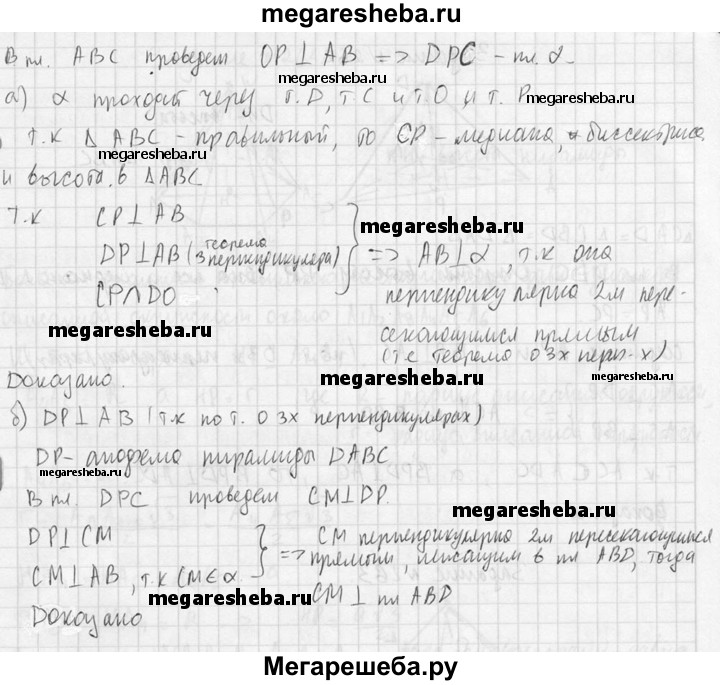 megaresheba.ru
В пл. ABC проведем OP⊥AB => DPC - пл. α
megaresheba.ru
а) α проходит через т.D, т.C и т.O и т. P megaresheba.ru
т.к Δ ABC - правильный, то CP - медиана, биссектриса
megaresheba.ru
и высота в ΔABC
т.к CP⊥AB
megaresheba.ru
DP⊥AB (теорема 3 перпендикуляра) => AB⊥α, т.к она
CP∩DO перпендикулярна 2м пере-
megaresheba.ru
секающимся прямым
(т.е теорема о 3х перп-х)
Доказано. megaresheba.ru megaresheba.ru
б) DP⊥AB (т.к по т. о 3х перпендикулярах)
DP - апофема пирамиды DABC
megaresheba.ru
В пл. DPC проведем CM⊥DP.
megaresheba.ru
DP⊥CM CM перпендикулярно 2м пересекающимся
=> прямым, лежащим в пл ABD, тогда
CM⊥AB, т.к CM∈α
megaresheba.ru CM⊥ пл ABD
Доказано
Мегарешеба.ру